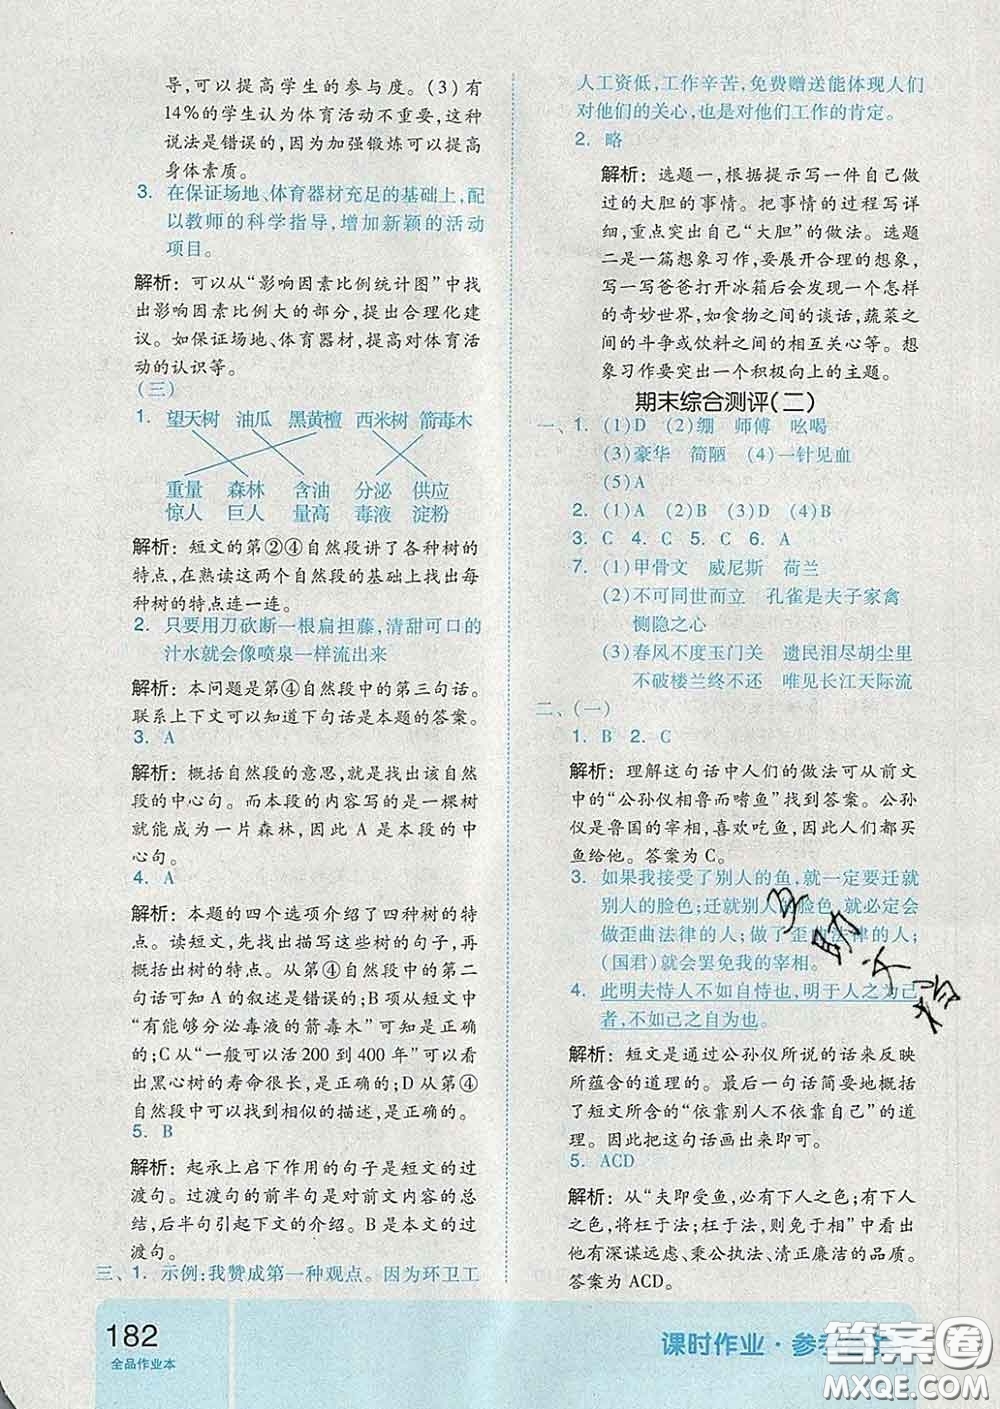 导,可以提高学生的参与度。(3)有
14%的学生认为体育活动不重要,这种
说法是错误的,因为加强锻炼可以提高
身体素质。
3. 在保证场地、体育器材充足的基础上,配
以教师的科学指导,增加新颖的活动
项目。
解析:可以从“影响因素比例统计图”中找
出影响因素比例大的部分,提出合理化建
议。如保证场地、体育器材,提高对体育活
动的认识等。
(三)
1. 望天树 油瓜 黑黄檀 西米树 箭毒木
重量 森林 含油 分泌 供应
惊人 巨人 量高 毒液 淀粉
解析:短文的第②④自然段讲了各种树的
特点,在熟读这两个自然段的基础上找出每
种树的特点连一连。
2. 只要用刀砍断一根扁担藤,清甜可口的
汁水就会像喷泉一样流出来
解析:本问题是第④自然段中的第三句话。
联系上下文可以知道下句话是本题的答案。
3. A
解析:概括自然段的意思,就是找出该自然
段的中心句。而本段的内容写的是一棵树
就能成为一片森林,因此 A 是本段的中
心句。
4. A
解析:本题的四个选项介绍了四种树的特
点。读短文,先找出描写这些树的句子,再
概括出树的特点。从第④自然段中的第二
句话可知 A 的叙述是错误的;B 项从短文中
“有能够分泌毒液的箭毒木”可知是正确
的;C 从“一般可以活 200 到 400 年”可以看
出黑心树的寿命很长,是正确的;D 从第④
自然段中可以找到相似的描述,是正确的。
5. B
解析:起承上启下作用的句子是短文的过
渡句。过渡句的前半句是对前文内容的总
结,后半句引起下文的介绍。B 是本文的过
渡句。
三、1. 示例:我赞成第一种观点。因为环卫工
人工资低,工作辛苦,免费赠送能体现人们
对他们的关心,也是对他们工作的肯定。
2. 略
解析:选题一,根据提示写一件自己做
过的大胆的事情。把事情的过程写详
细,重点突出自己“大胆”的做法。选题
二是一篇想象习作,要展开合理的想象,
写一写爸爸打开冰箱后会发现一个怎样
的奇妙世界,如食物之间的谈话,蔬菜之
间的斗争或饮料之间的相互关心等。想
象习作要突出一个积极向上的主题。
期末综合测评(二)
一、1. (1)D (2)绷 师傅 吆喝
(3)豪华 简陋 (4)一针见血
(5)A
2. (1)A (2)B (3)D (4)C
3. C 4. C 5. C 6. A
7. (1)甲骨文 威尼斯 荷兰
(2)不可同世而立 孔雀是夫子家禽
恻隐之心
(3)春风不度玉门关 遗民泪尽胡尘里
不破楼兰终不还 唯见长江天际流
二、(一)
1. B 2. C
解析:理解这句话中人们的做法可从前文
中的“公孙仪相鲁而嗜鱼”找到答案。公孙
仪是鲁国的宰相,喜欢吃鱼,因此人们都买
鱼给他。答案为 C。
3. 如果我接受了别人的鱼,就一定要迁就
别人的脸色;迁就别人的脸色,就必定会
做歪曲法律的人;做了歪曲法律的人;
(国君)就会罢免我的宰相。
4. 此明夫恃人不如自恃也,明于人之为己
者,不如己之自为也。
解析:短文是通过公孙仪所说的话来反映
所蕴含的道理的。最后一句话简要地概括
了短文所含的“依靠别人不依靠自己”的道
理。因此把这句话画出来即可。
5. ACD
解析:从“夫即受鱼,必有下人之色,有下人
之色,将枉于法;枉于法,则免于相”中看出
他有深谋远虑、秉公执法、清正廉洁的品质。
答案为 ACD。
182
全品作业本
课时作业·参考
答案圈
MXQE.COM